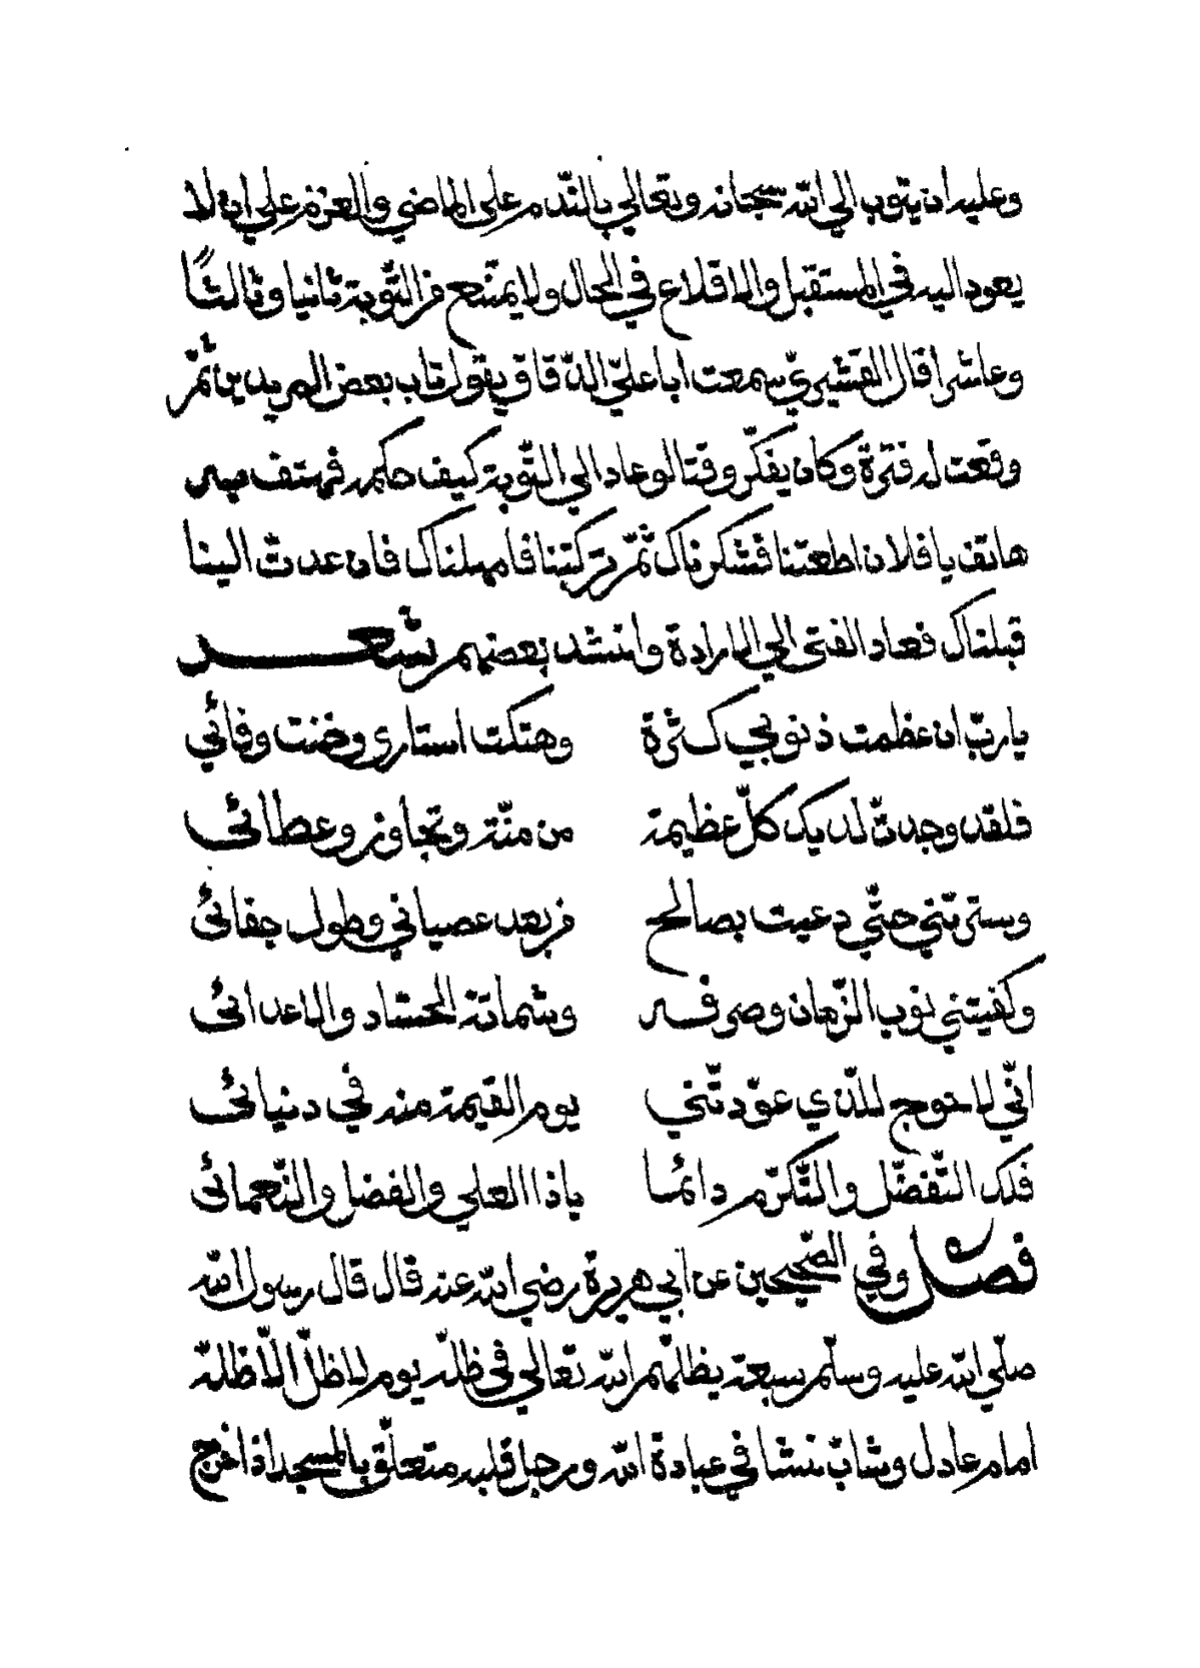 وعليه ان يتوب الي الله سبحانه وتعالي بالنّدم علي الماضي والعزم علي ان لا
يعود اليه في المستقبل والاقلاع في الحال ولا يمتنع من التّوبة ثانيا وثالثًا
وعاشرا قال القشيريّ سمعت ابا عليّ الدّقاق يقول تاب بعض المريدين ثمّ
وقعت له فترة وكان يفكّر وقتا لو عاد الي التّوبة كيف حكمه فهتف به
هاتف يا فلان اطعتنا فشكرناك ثمّ تركتنا فامهلناك فان عدت الينا
قبلناك فعاد الفتي الي الارادة وانشد بعضهم شعر
يا ربّ ان عظمت ذنوبي كثرة وهتكت استاري وخنت وفائي
فلقد وجدتّ لديك كلّ عظيمة من منّة وتجاوز وعطائي
وسترتّني حتّي دعيت بصالح من بعد عصياني وطول جفائي
وكفيتني نوب الزّمان وصرفه وشماتة الحسّاد والاعدائي
انّي لاحوج للّذي عوّدتّني يوم القيمة منه في دنيائي
فلك التّفضّل والتّكرّم دائما ياذا العلي والفضل والنّعمائي
فصل وفي الصّحيحين عن ابي هريرة رضي الله عنه قال قال رسول الله
صلّي الله عليه وسلّم سبعة يظلّهم الله تعالي في ظلّه يوم لا ظلّ الّا ظلّه
امام عادل وشابّ نشا في عبادة الله ورجل قلبه متعلّق بالمسجد اذا خرج